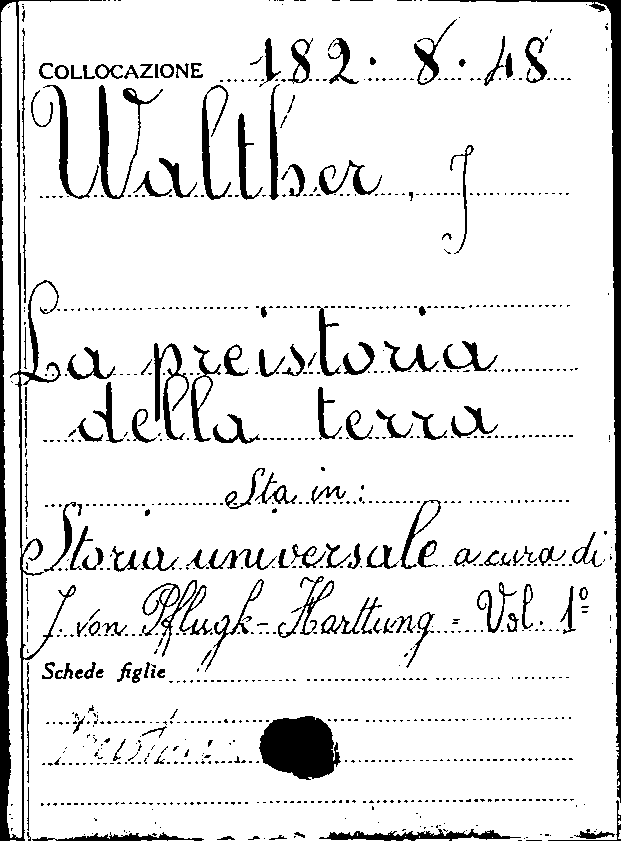 COLLOCAZIONE 182. 8. 48
Walther, J
La preistoria
della terra
Sta in:
Storia universale a cura di
J. von Pflugk-Harttung = Vol. 1º
Schede figlie